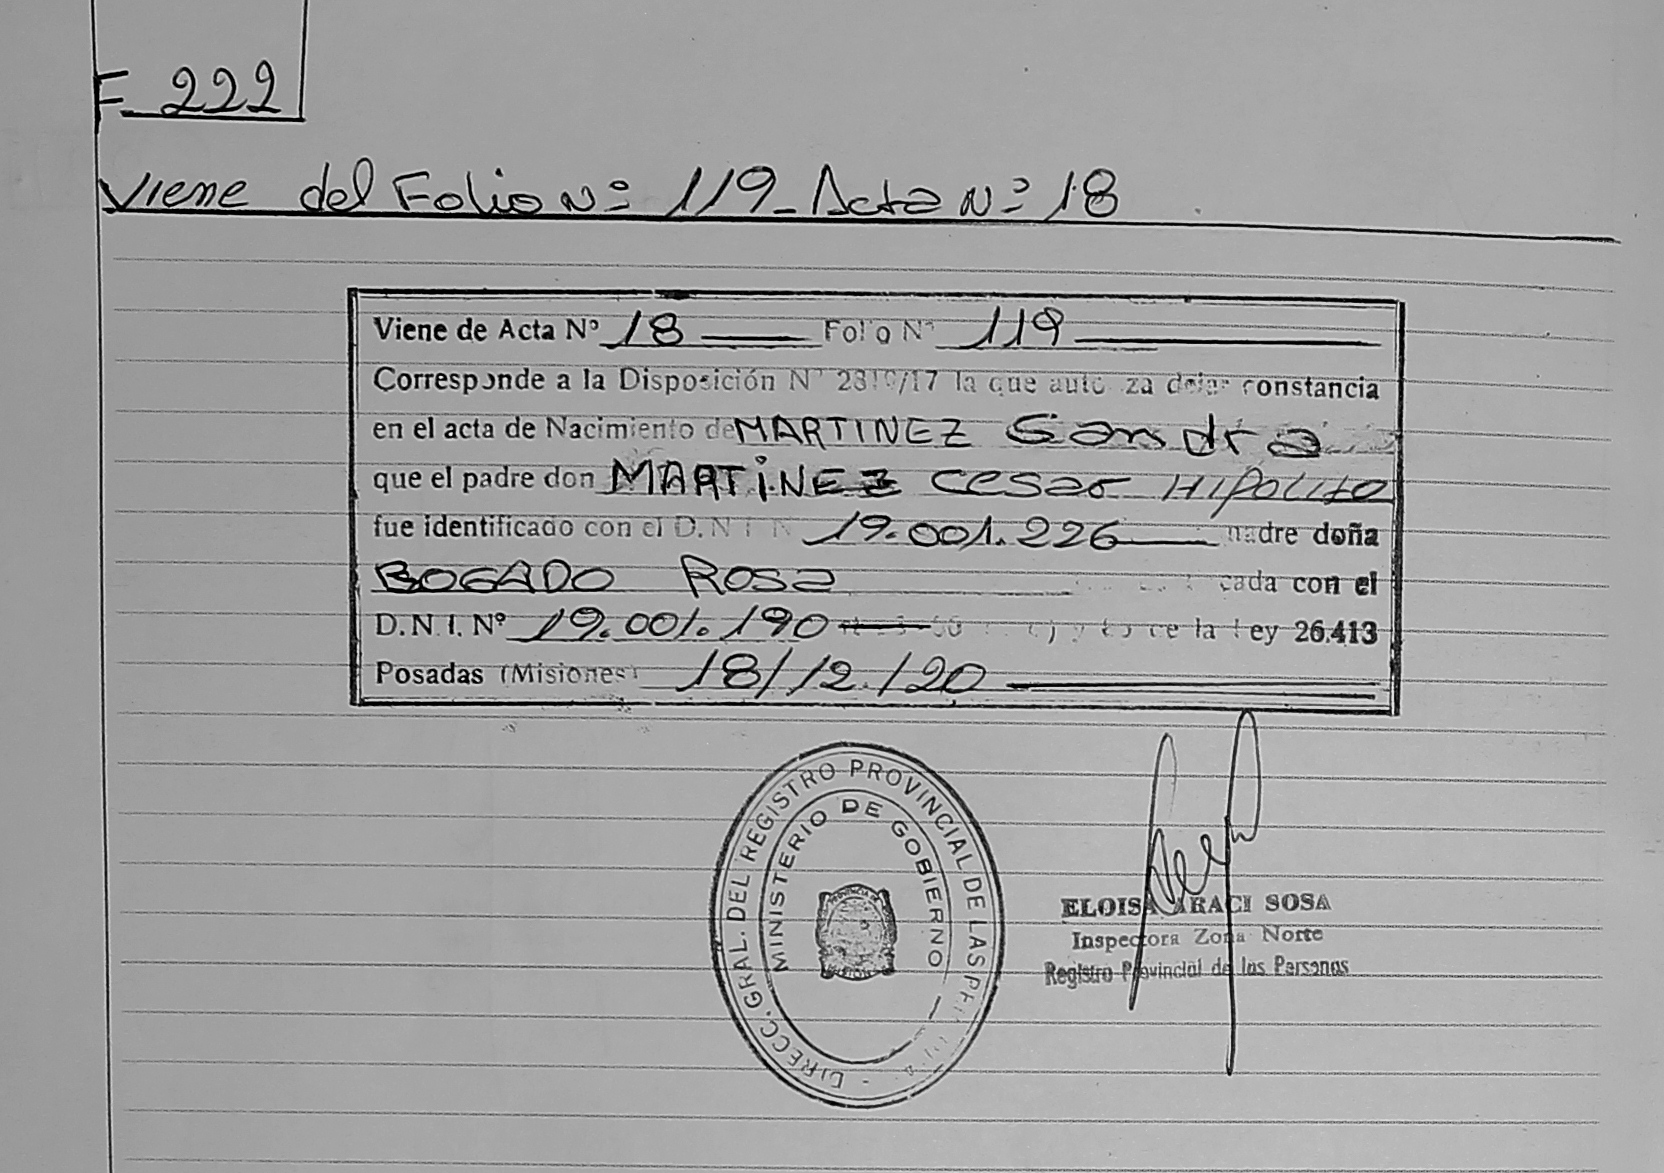 F 222
Viene del Folio Nº 119 - Acta Nº 18
Viene de Acta Nº 18 Folio Nº 119
Corresponde a la Disposición Nº /17 la que autoriza dejar constancia
en el acta de Nacimiento de MARTINEZ Sandra
que el padre don MARTINEZ Cesar HIPOLITO
fue identificado con el D.N.I. Nº 19.001.226 madre doña
BOGADO ROSA con el
D.N.I. Nº 19.001.190 de la Ley 26.413
Posadas (Misiones) 18/12/20
DIRECC. GRAL. DEL REGISTRO PROVINCIAL DE LAS
MINISTERIO DE GOBIERNO
ELOISA ARACI SOSA
Inspectora Zona Norte
Registro Provincial de las Personas